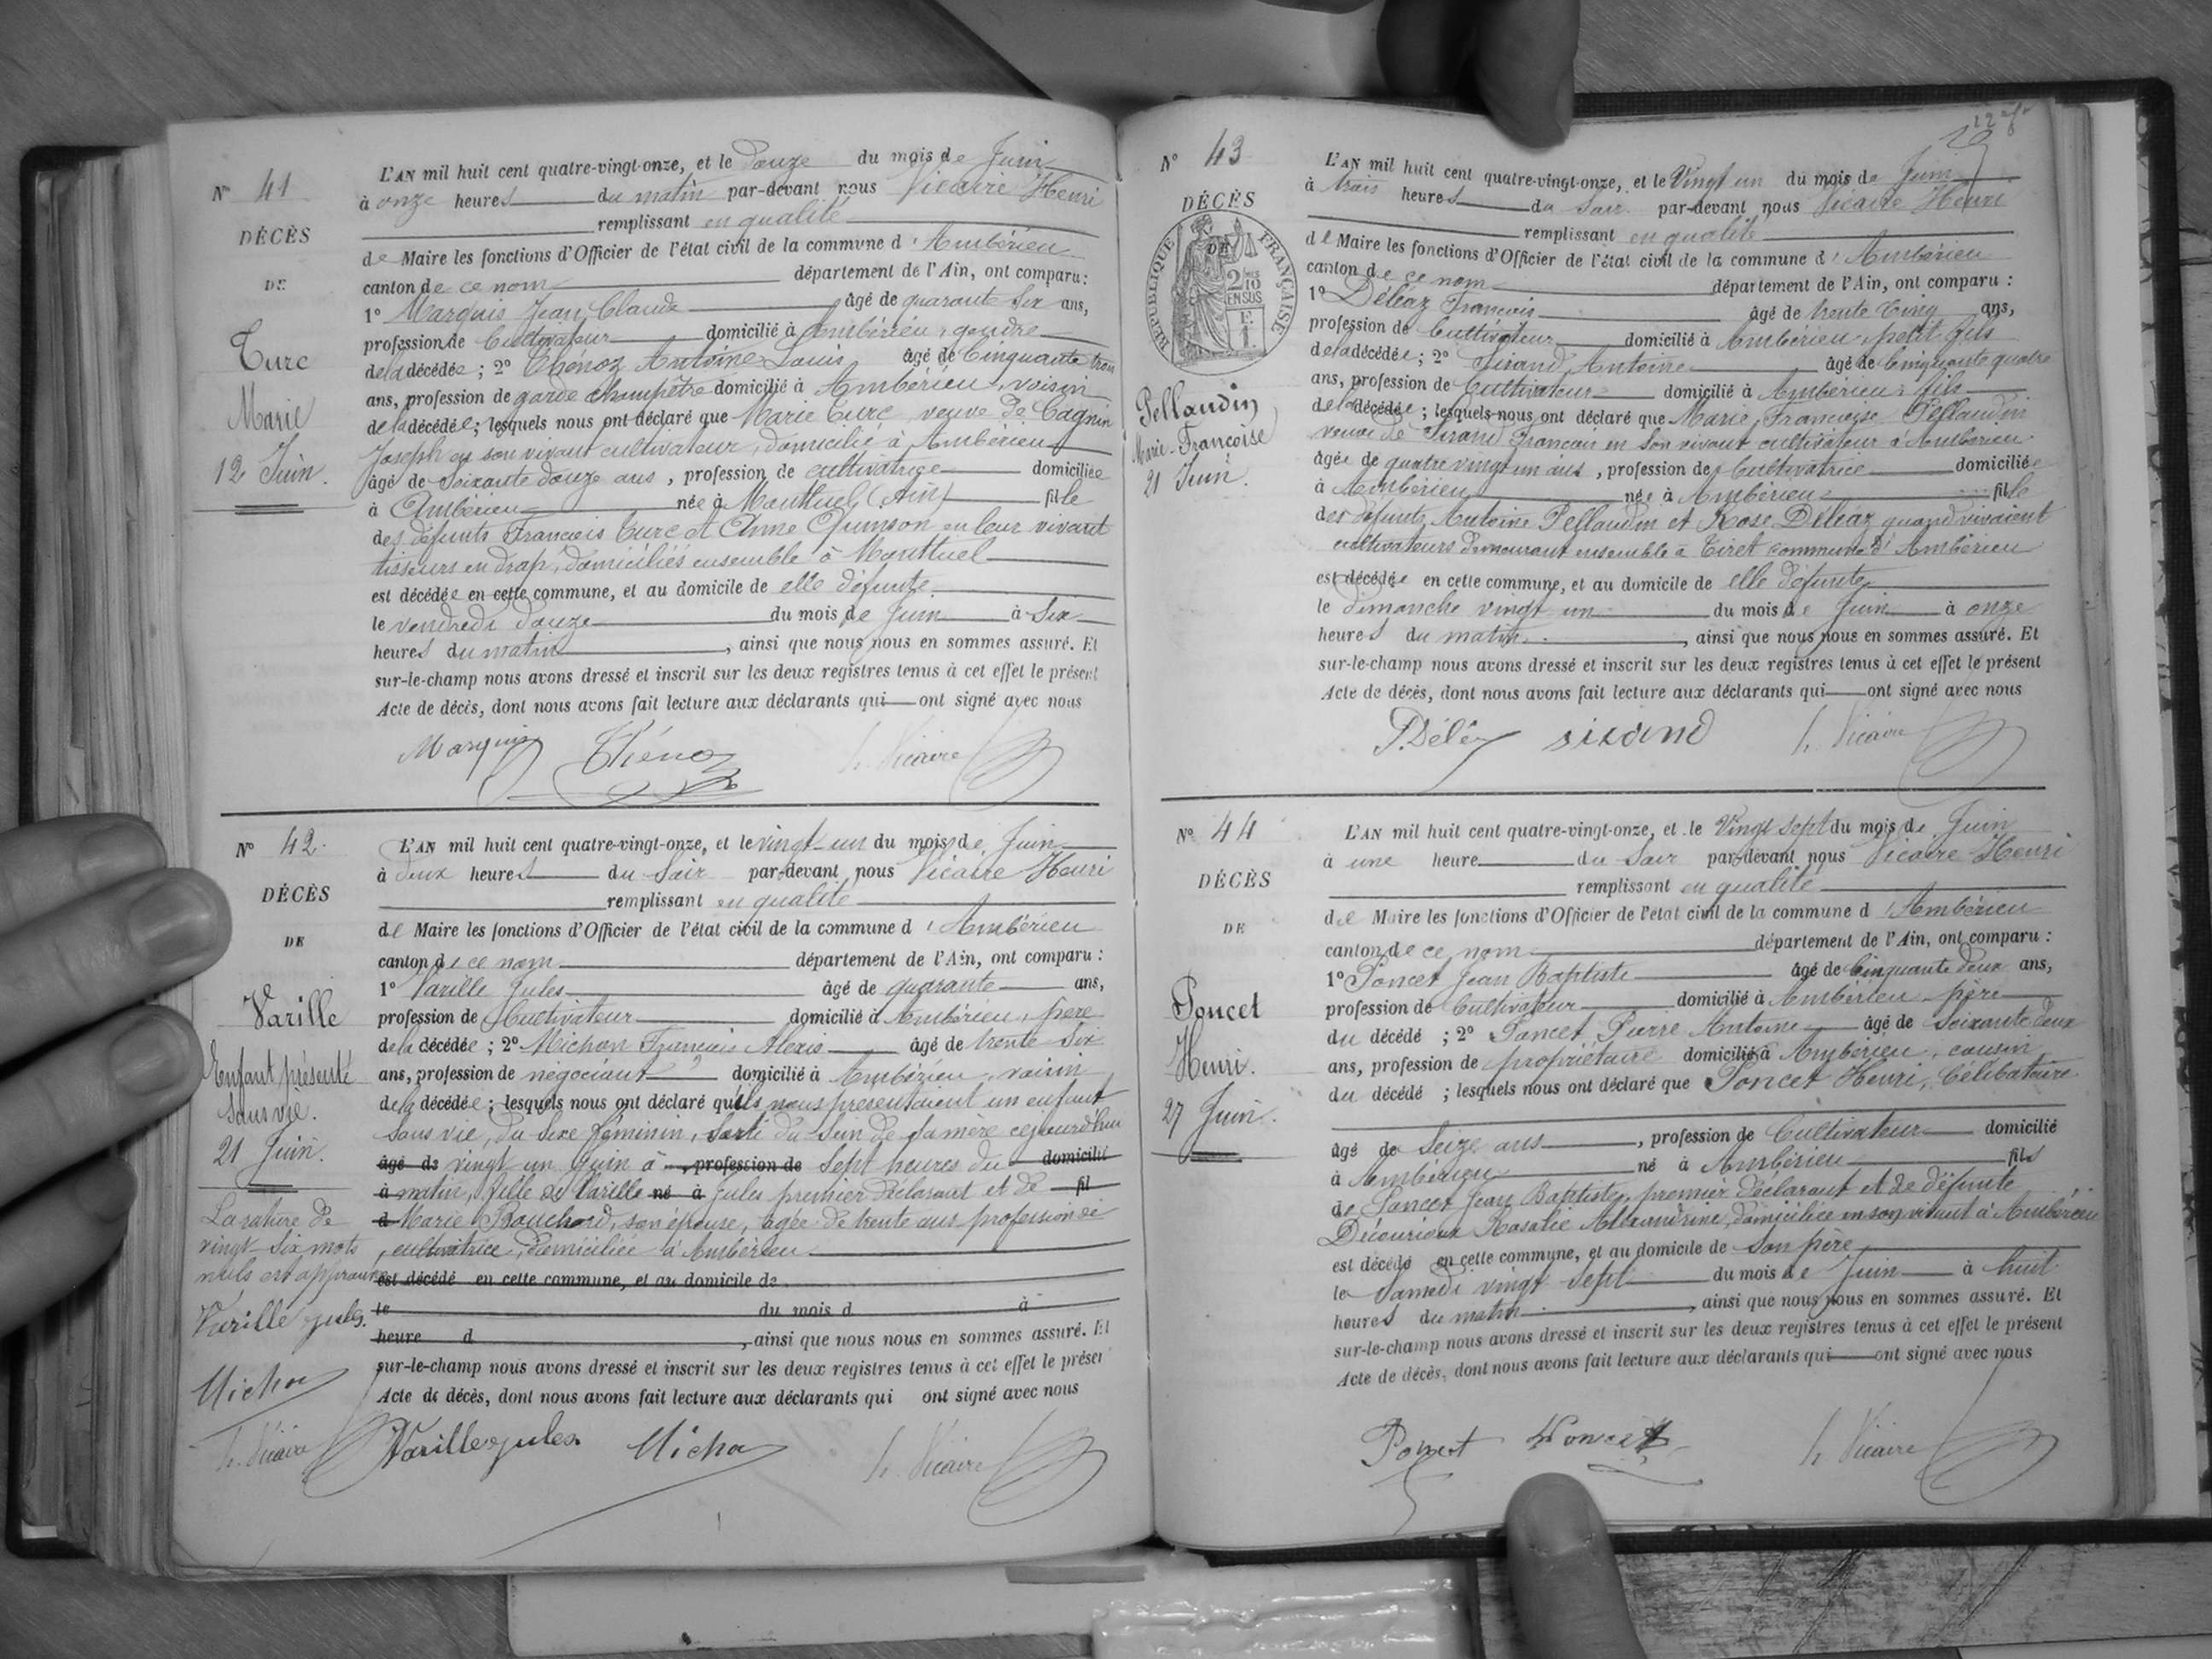 N° 41
DÉCÈS
DE
Turc
Marie
12 Juin.
L'AN mil huit cent quatre-vingt-onze, et le douze du mois de Juin
à onze heures du matin par-devant nous Vicaire Henri
remplissant en qualité
de Maire les fonctions d'Officier de l'état civil de la commune d'Ambérieu
canton de ce nom département de l'Ain, ont comparu :
1° Marquis Jean Claude âgé de quarante six ans,
profession de Cultivateur domicilié à Ambérieu, gendre
de la décédée ; 2° Thénoz Antoine Louis âgé de Cinquante trois
ans, profession de garde champêtre domicilié à Ambérieu, voisin
de la décédée ; lesquels nous ont déclaré que Marie Turc, veuve de Cagnin
Joseph en son vivant cultivateur, domicilié à Ambérieu
âgé de Soixante douze ans, profession de cultivatrice domiciliée
à Ambérieu née à Montluel (Ain) fille
des défunts François Turc et Anne en leur vivant
tisseurs en drap, domiciliés ensemble à Montluel
est décédée en cette commune, et au domicile de elle défunte
le vendredi douze du mois de Juin à Six
heures du matin, ainsi que nous nous en sommes assuré. Et
sur-le-champ nous avons dressé et inscrit sur les deux registres tenus à cet effet le présent
Acte de décès, dont nous avons fait lecture aux déclarants qui ont signé avec nous
Marquis Thénoz h. Vicaire
N° 42.
DÉCÈS
DE
Varille
Enfant présenté
sans vie.
21 Juin.
La rature de
vingt-six mots
nuls est approuvée
Varille jules.
Michon
h. Vicaire
L'AN mil huit cent quatre-vingt-onze, et le vingt-un du mois de Juin
à deux heures du Soir par-devant nous Vicaire Henri
remplissant en qualité
de Maire les fonctions d'Officier de l'état civil de la commune d'Ambérieu
canton de ce nom département de l'Ain, ont comparu :
1° Varille Jules âgé de quarante ans,
profession de Cultivateur domicilié à Ambérieu, père
de la décédée ; 2° Michon François Alexis âgé de trente Six
ans, profession de négociant domicilié à Ambérieu, voisin
de la décédée ; lesquels nous ont déclaré qu'ils nous présentaient un enfant
sans vie, du sexe féminin, sorti du sein de sa mère cejourd'hui
âgé de vingt un Juin à profession de Sept heures du domicilié
à matin, fille de Varille né à Jules premier déclarant et de fil
d Marie Bouchard, son épouse, âgée de trente ans profession de
cultivatrice, domiciliée à Ambérieu
est décédé en cette commune, et au domicile de
le du mois d à
heure d, ainsi que nous nous en sommes assuré. Et
sur-le-champ nous avons dressé et inscrit sur les deux registres tenus à cet effet le présent
Acte de décès, dont nous avons fait lecture aux déclarants qui ont signé avec nous
Varille jules. Michon h. Vicaire
N° 43
DÉCÈS
DE
RÉPUBLIQUE FRANÇAISE
2/10 EN SUS
Pellaudin
Marie-Françoise
21 Juin.
L'AN mil huit cent quatre-vingt-onze, et le Vingt un du mois de Juin
à trois heures du Soir par-devant nous Vicaire Henri
remplissant en qualité
de Maire les fonctions d'Officier de l'état civil de la commune d'Ambérieu
canton de ce nom département de l'Ain, ont comparu :
1° Déléaz François âgé de trente Cinq ans,
profession de Cultivateur domicilié à Ambérieu, petit fils
de la décédée ; 2° Sirand Antoine âgé de Cinquante quatre
ans, profession de Cultivateur domicilié à Ambérieu, fils
de la décédée ; lesquels nous ont déclaré que Marie Françoise Pellaudin
veuve de Sirand François en son vivant cultivateur à Ambérieu
âgée de quatre vingt un ans, profession de Cultivatrice domiciliée
à Ambérieu née à Ambérieu fille
des défunts Antoine Pellaudin et Rose Déléaz quand vivaient
cultivateurs demeurant ensemble à Tiret commune d'Ambérieu
est décédée en cette commune, et au domicile de elle défunte
le dimanche vingt un du mois de Juin à onze
heures du matin, ainsi que nous nous en sommes assuré. Et
sur-le-champ nous avons dressé et inscrit sur les deux registres tenus à cet effet le présent
Acte de décès, dont nous avons fait lecture aux déclarants qui ont signé avec nous
sirand h. Vicaire
N° 44
DÉCÈS
DE
Poncet
Henri.
27 Juin.
L'AN mil huit cent quatre-vingt-onze, et le Vingt Sept du mois de Juin
à une heure du Soir par-devant nous Vicaire Henri
remplissant en qualité
de Maire les fonctions d'Officier de l'état civil de la commune d'Ambérieu
canton de ce nom département de l'Ain, ont comparu :
1° Poncet Jean Baptiste âgé de Cinquante deux ans,
profession de Cultivateur domicilié à Ambérieu, père
du décédé ; 2° Poncet Pierre Antoine âgé de Soixante deux
ans, profession de propriétaire domicilié à Ambérieu, cousin
du décédé ; lesquels nous ont déclaré que Poncet Henri, Célibataire
âgé de Seize ans, profession de Cultivateur domicilié
à Ambérieu né à Ambérieu fils
de Poncet Jean Baptiste, premier déclarant et de défunte
Rosalie Alexandrine, domiciliée en son vivant à Ambérieu
est décédé en cette commune, et au domicile de Son père
le Samedi vingt Sept du mois de Juin à huit
heures du matin, ainsi que nous nous en sommes assuré. Et
sur-le-champ nous avons dressé et inscrit sur les deux registres tenus à cet effet le présent
Acte de décès, dont nous avons fait lecture aux déclarants qui ont signé avec nous
Poncet Poncet h. Vicaire